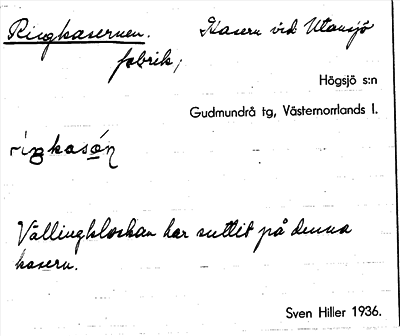 Ringkasernen. Kasern vid Utansjö
fabrik,
Högsjö s:n
Gudmundrå tg, Västernorrlands l.
riŋkasǻ́n
Vällingklockan har suttit på denna
kasern.
Sven Hiller 1936.